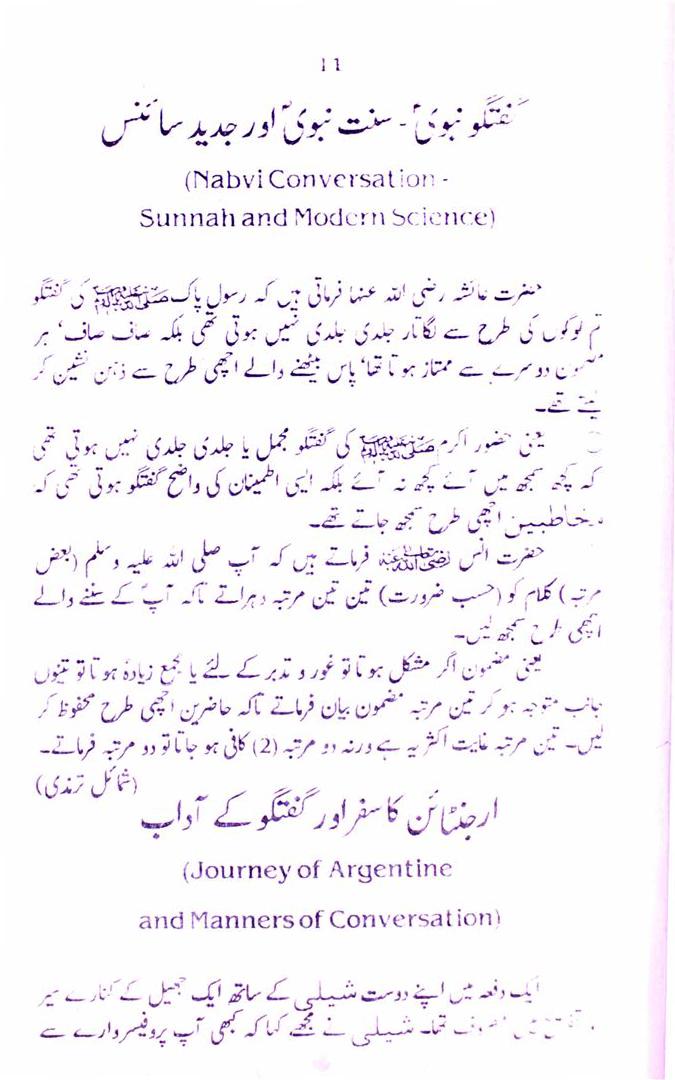 11
گفتگو نبویؐ - سنت نبویؐ اور جدید سائنس
(Nabvi Conversation -
Sunnah and Modern Science)
حضرت عائشہ رضی اللہ عنہا فرماتی ہیں کہ رسول پاک ﷺ کی گفتگو
تم لوگوں کی طرح سے لگاتار جلدی جلدی نہیں ہوتی تھی بلکہ صاف صاف، ہر
مضمون دوسرے سے ممتاز ہوتا تھا، پاس بیٹھنے والے اچھی طرح سے ذہن نشین کر
لیتے تھے۔
یعنی حضور اکرم ﷺ کی گفتگو مجمل یا جلدی جلدی نہیں ہوتی تھی
کہ کچھ سمجھ میں آئے کچھ نہ آئے بلکہ ایسی اطمینان کی واضح گفتگو ہوتی تھی کہ
مخاطبین اچھی طرح سمجھ جاتے تھے۔
حضرت انس رضی اللہ عنہ فرماتے ہیں کہ آپ صلی اللہ علیہ وسلم (بعض
مرتبہ) کلام کو (حسب ضرورت) تین تین مرتبہ دہراتے تاکہ آپؐ کے سننے والے
اچھی طرح سمجھ لیں۔
یعنی مضمون اگر مشکل ہوتا تو غور و تدبر کے لئے یا مجمع زیادہ ہوتا تو تینوں
جانب متوجہ ہو کر تین مرتبہ مضمون بیان فرماتے تاکہ حاضرین اچھی طرح محفوظ کر
لیں۔ تین مرتبہ غایت اکثریہ ہے ورنہ دو مرتبہ (2) کافی ہو جاتا تو دو مرتبہ فرماتے۔
(شمائل ترمذی)
ارجنٹائن کا سفر اور گفتگو کے آداب
(Journey of Argentine
and Manners of Conversation)
ایک دفعہ میں اپنے دوست شیلی کے ساتھ ایک جھیل کے کنارے سیر
میں مصروف تھا۔ شیلی نے مجھے کہا کہ کبھی آپ پروفیسر وارے سے